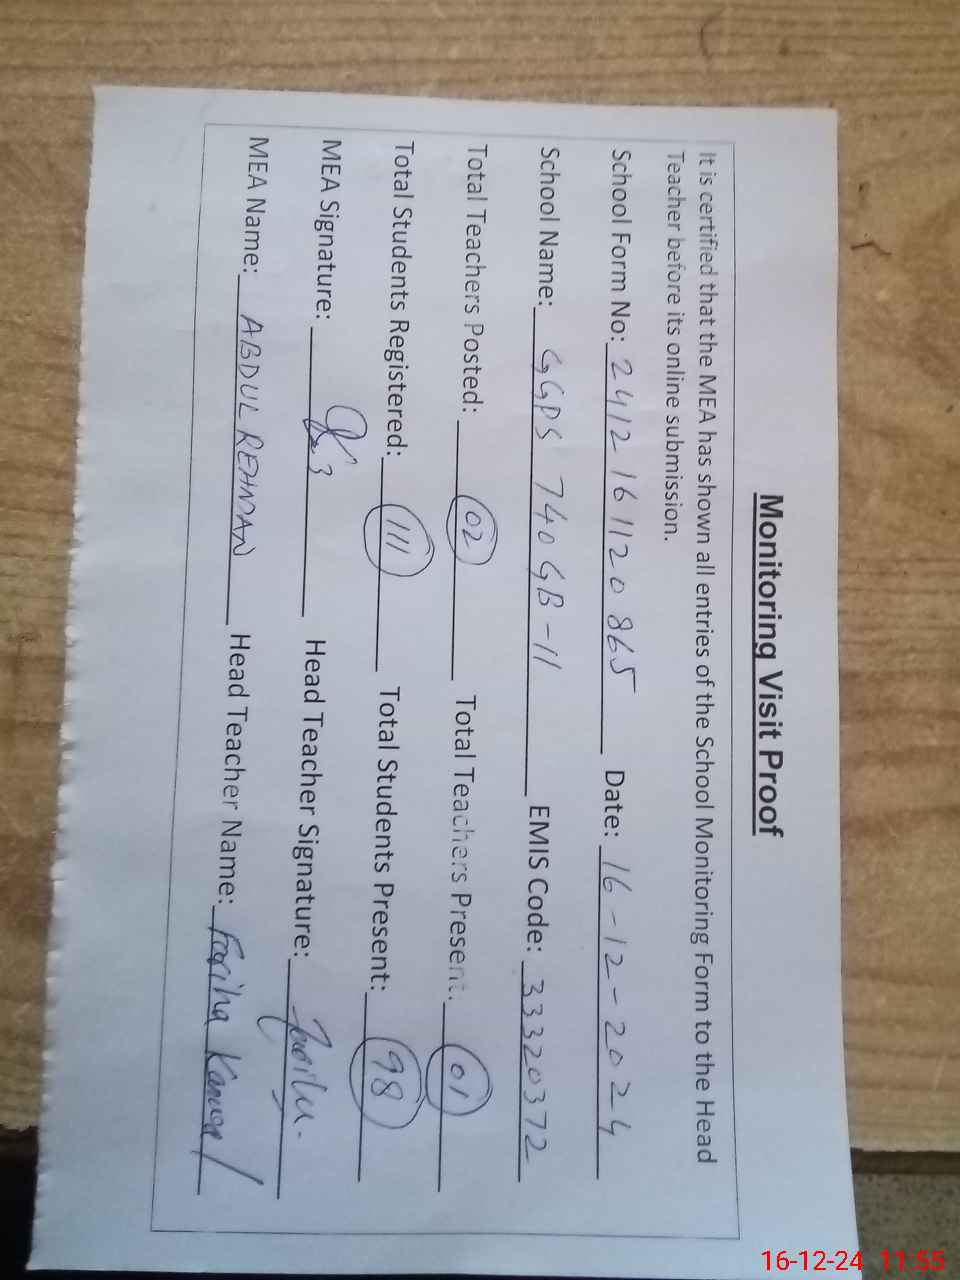 Monitoring Visit Proof
It is certified that the MEA has shown all entries of the School Monitoring Form to the Head
Teacher before its online submission.
School Form No: 241216 1120 865 Date: 16-12-2024
School Name: GGPS 740 GB-11 EMIS Code: 33320372
Total Teachers Posted: 02 Total Teachers Present: 01
Total Students Registered: 111 Total Students Present: 98
MEA Signature: Head Teacher Signature:
MEA Name: ABDUL REHMAN Head Teacher Name: Fariha Kanwal
16-12-24 11:55